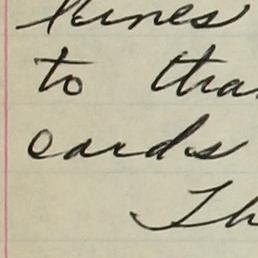 lines
to tha
cards
Th